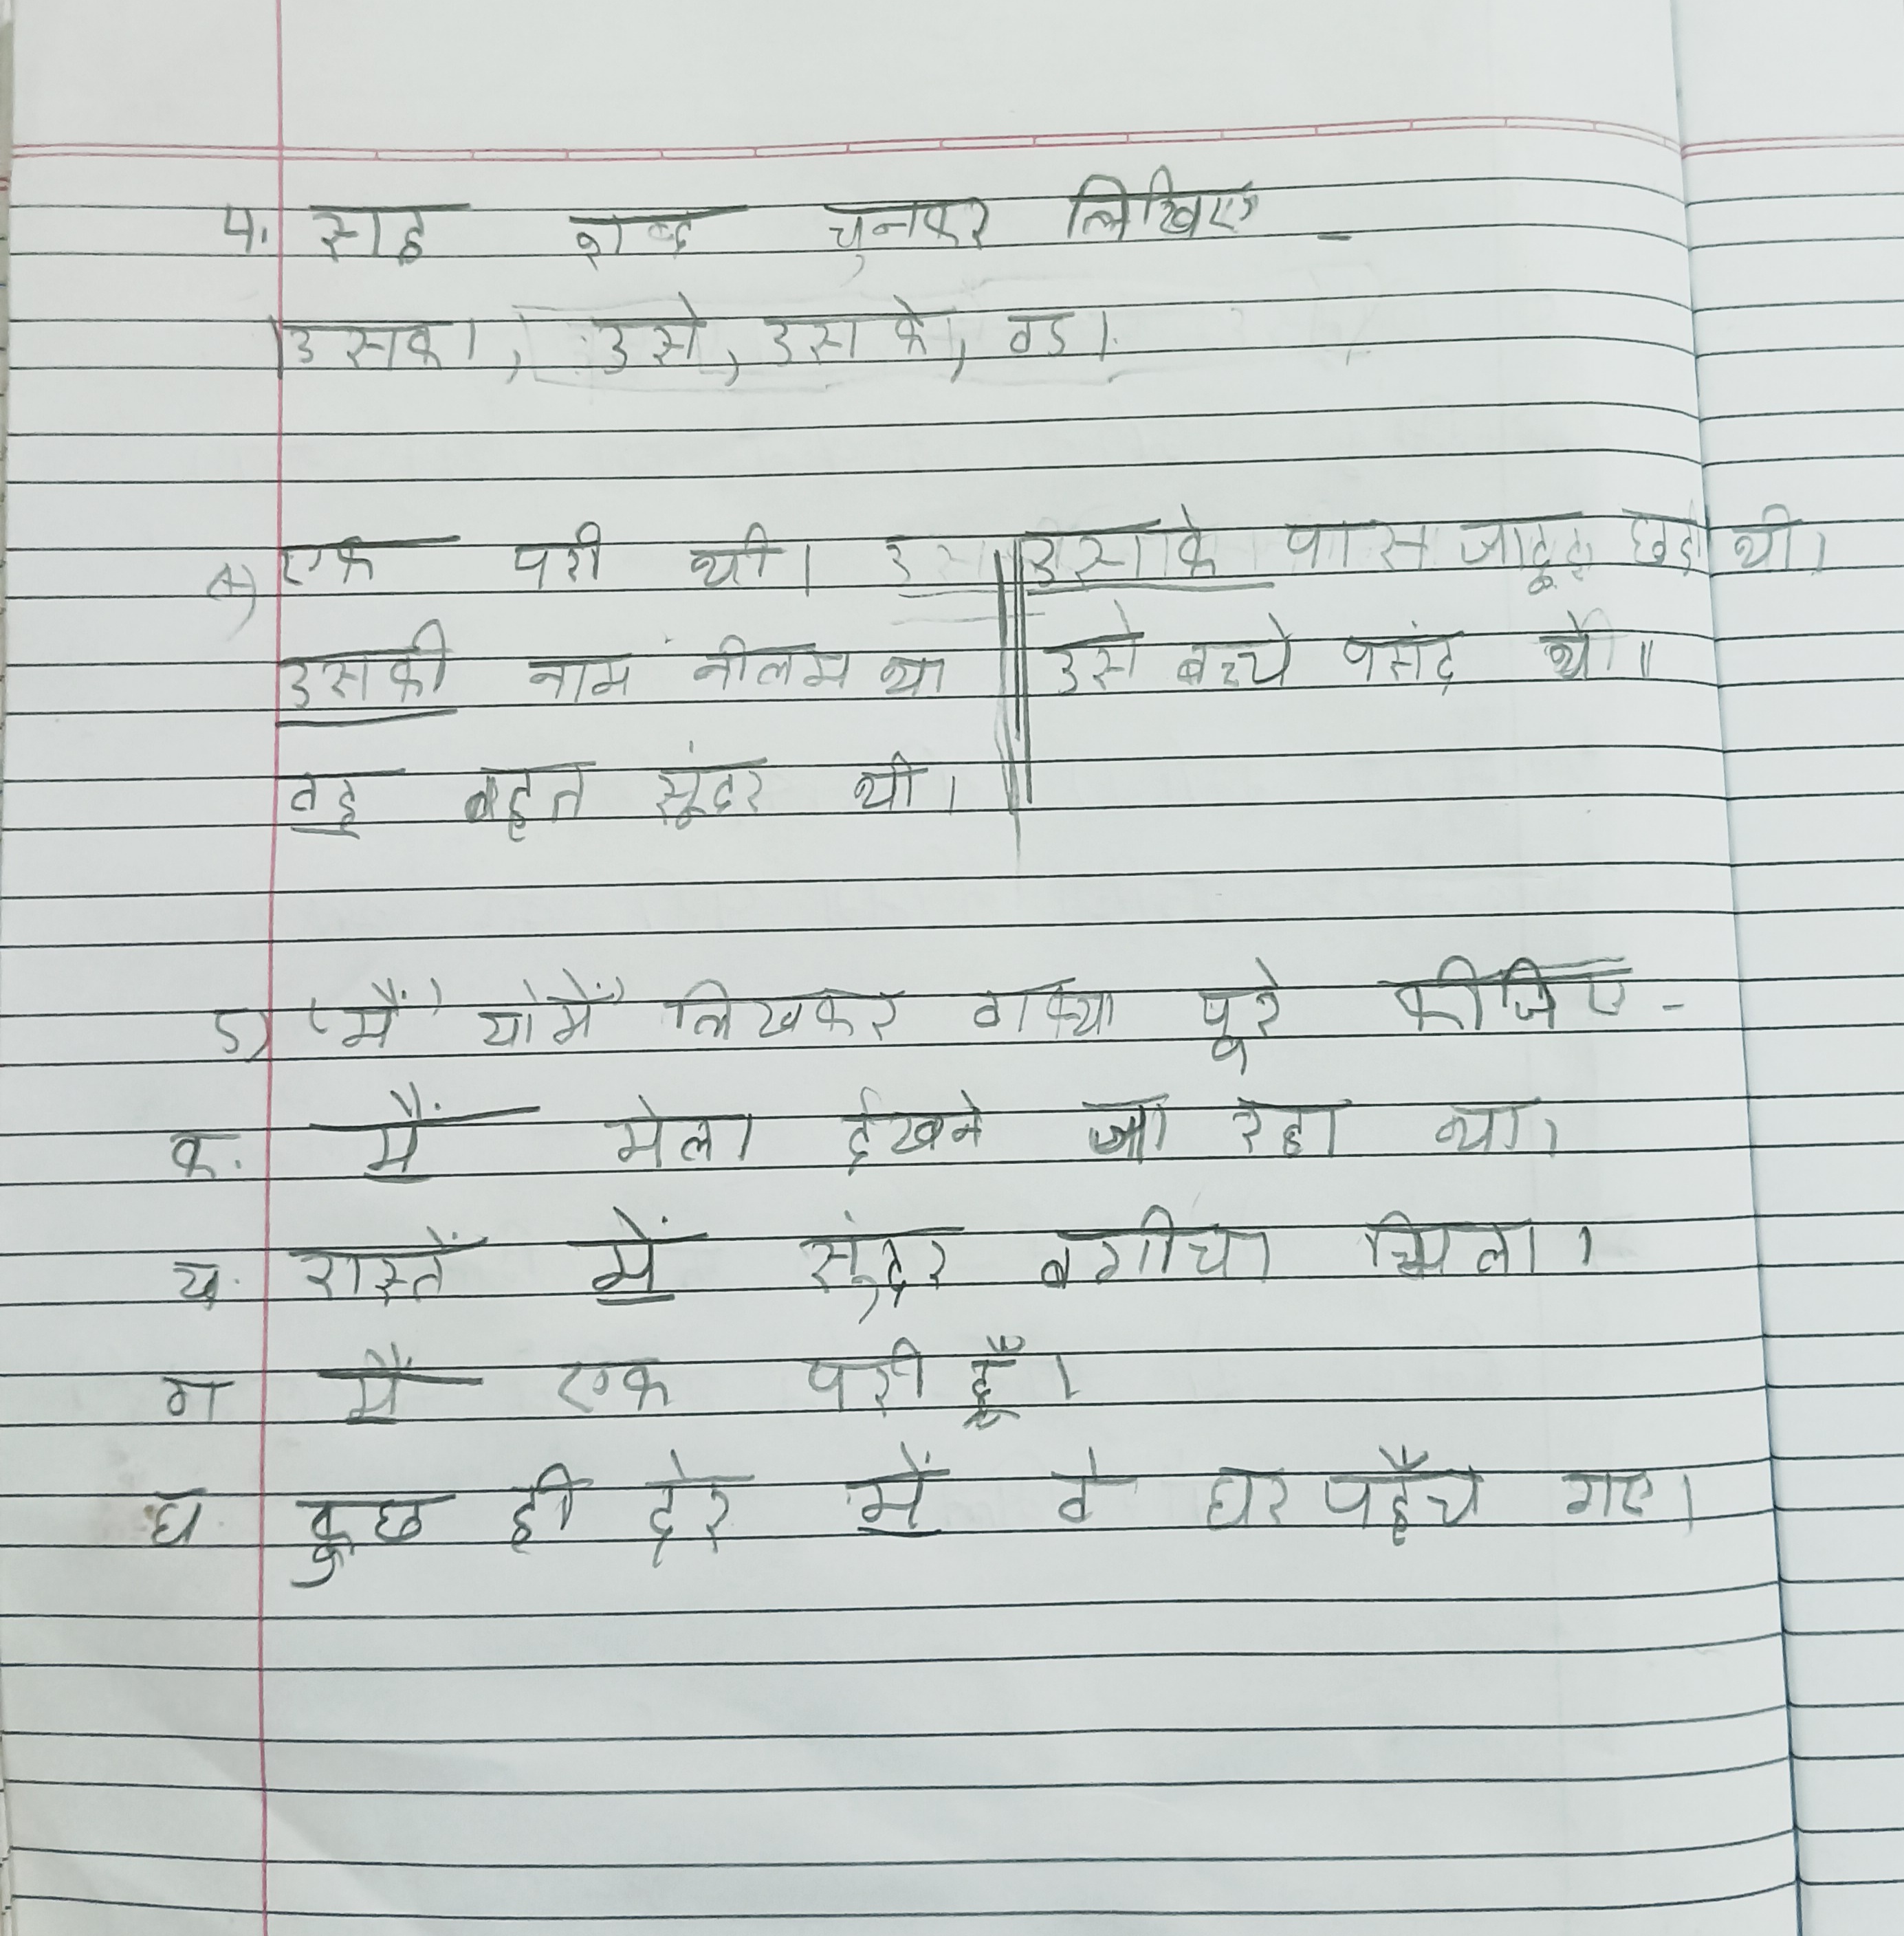 4. साह शब्द चुनकर लिखिए -
उसका, उसे, उसके, वह।
4) एक परी थी। उस
उसकी नाम नीलम था
वह बहुत सूंदर थी।
उसके पास जादूई छड़ी थी।
उसे बच्चे पसंद थे॥
5) 'मैं' या में लिखकर वाक्या पूरे कीजिए -
क. मैं मेला देखने जा रहा था।
ख. रास्तें में सुंदर बगीचा मिला।
ग मैं एक परी हूँ।
घ कुछ ही देर में वे घर पहुँच गए।